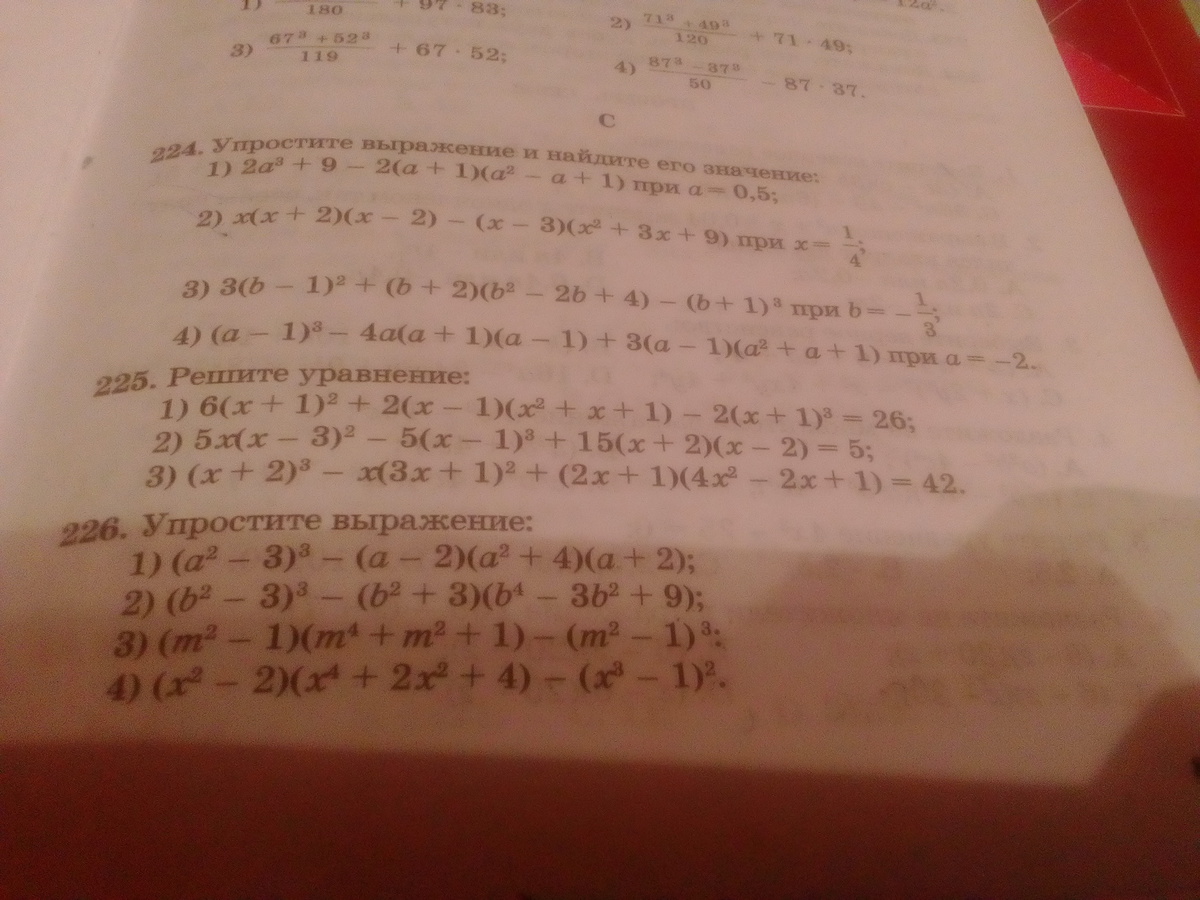 12a².
1) 180 + 97 · 83;
2) (71³ + 49³)/120 + 71 · 49;
3) (67³ + 52³)/119 + 67 · 52;
4) (87³ − 37³)/50 − 87 · 37.
С
224. Упростите выражение и найдите его значение:
1) 2a³ + 9 − 2(a + 1)(a² − a + 1) при a = 0,5;
2) x(x + 2)(x − 2) − (x − 3)(x² + 3x + 9) при x = 1/4;
3) 3(b − 1)² + (b + 2)(b² − 2b + 4) − (b + 1)³ при b = −1/3;
4) (a − 1)³ − 4a(a + 1)(a − 1) + 3(a − 1)(a² + a + 1) при a = −2.
225. Решите уравнение:
1) 6(x + 1)² + 2(x − 1)(x² + x + 1) − 2(x + 1)³ = 26;
2) 5x(x − 3)² − 5(x − 1)³ + 15(x + 2)(x − 2) = 5;
3) (x + 2)³ − x(3x + 1)² + (2x + 1)(4x² − 2x + 1) = 42.
226. Упростите выражение:
1) (a² − 3)³ − (a − 2)(a² + 4)(a + 2);
2) (b² − 3)³ − (b² + 3)(b⁴ − 3b² + 9);
3) (m² − 1)(m⁴ + m² + 1) − (m² − 1)³;
4) (x² − 2)(x⁴ + 2x² + 4) − (x³ − 1)².